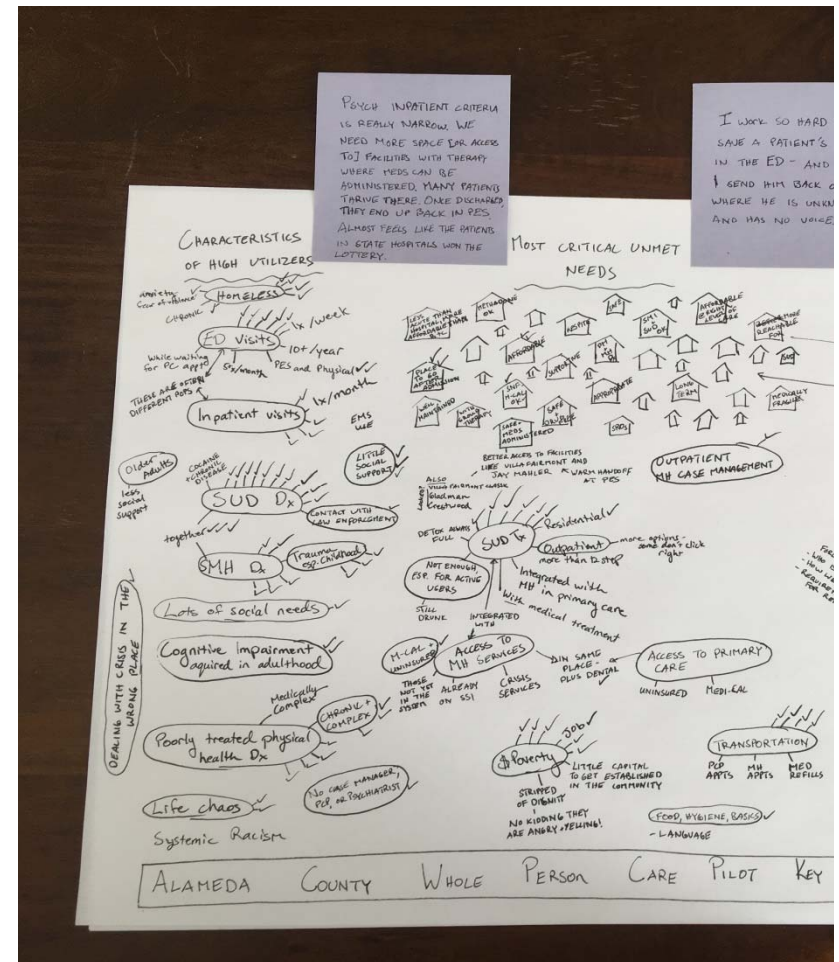 PSYCH INPATIENT CRITERIA
IS REALLY NARROW. WE
NEED MORE SPACE [OR ACCESS
TO] FACILITIES WITH THERAPY
WHERE MEDS CAN BE
ADMINISTERED. MANY PATIENTS
THRIVE THERE. ONCE DISCHARGED,
THEY END UP BACK IN PES.
ALMOST FEELS LIKE THE PATIENTS
IN STATE HOSPITALS WON THE
LOTTERY.
I WORK SO HARD
SAVE A PATIENT'S
IN THE ED - AND
I SEND HIM BACK
WHERE HE IS
AND HAS NO VOICE
CHARACTERISTICS
OF HIGH UTILIZERS
Anxiety
HOMELESS
CHRONIC
ED VISITS
1x/week
10+/year
5x/month
PES and Physical
While waiting
for PC appt
THESE ARE OFTEN
DIFFERENT POPS
Inpatient visits
1x/month
EMS
USE
Older
Adults
less
social
support
COCAINE
+ CHRONIC
DISEASE
LITTLE
SOCIAL
SUPPORT
SUD Dx
CONTACT WITH
LAW ENFORCEMENT
together
SMH Dx
Trauma
esp. Childhood
Lots of social needs
Cognitive Impairment
aquired in adulthood
DEALING WITH CRISIS IN THE
WRONG PLACE
Medically
Complex
CHRONIC +
COMPLEX
Poorly treated physical
health Dx
NO CASE MANAGER,
PCP, OR PSYCHIATRIST
Life chaos
Systemic Racism
MOST CRITICAL UNMET
NEEDS
LESS
ACUTE THAN
HOSPITAL; MORE
AFFORDABLE THAN
B+C
METHADONE
OK
RESPITE
SMI
SUD OK
AFFORDABLE
@ RIGHT
LEVEL OF
CARE
MORE
REACHABLE
FOR
PLACE
TO GO
AFTER
ADMISSION
AFFORDABLE
SUPPORTIVE
SNF
M-CAL
OK
APPROPRIATE
LONG
TERM
MEDICALLY
FRAGILE
WELL
MAINTAINED
WITH
GROUP
THERAPY
SAFE
SAFE-
MEDS
ADMINISTERED
SROs
BETTER ACCESS TO FACILITIES
LIKE VILLA FAIRMONT AND
JAY MAHLER
WARM HANDOFF
AT PES
OUTPATIENT
MH CASE MANAGEMENT
ALSO
VILLA FAIRMONT
Gladman
Crestwood
DETOX ALWAYS
FULL
SUD Tx
Residential
Outpatient
more than 12 step
more options-
some don't click
right
Integrated with
MH in primary care
With medical treatment
NOT ENOUGH,
ESP. FOR ACTIVE
USERS
STILL
DRUNK
INTEGRATED
WITH
M-CAL +
UNINSURED
ACCESS TO
MH SERVICES
THOSE
NOT YET
IN THE
SYSTEM
ALREADY
ON SSI
CRISIS
SERVICES
IN SAME
PLACE -
PLUS DENTAL
ACCESS TO PRIMARY
CARE
UNINSURED
MEDI-CAL
$Poverty
Job
LITTLE CAPITAL
TO GET ESTABLISHED
IN THE COMMUNITY
STRIPPED
OF DIGNITY
NO KIDDING THEY
ARE ANGRY + YELLING!
TRANSPORTATION
PCP
APPTS
MH
APPTS
MED
REFILLS
FOOD, HYGIENE, BASICS
- LANGUAGE
ALAMEDA COUNTY WHOLE PERSON CARE PILOT KEY